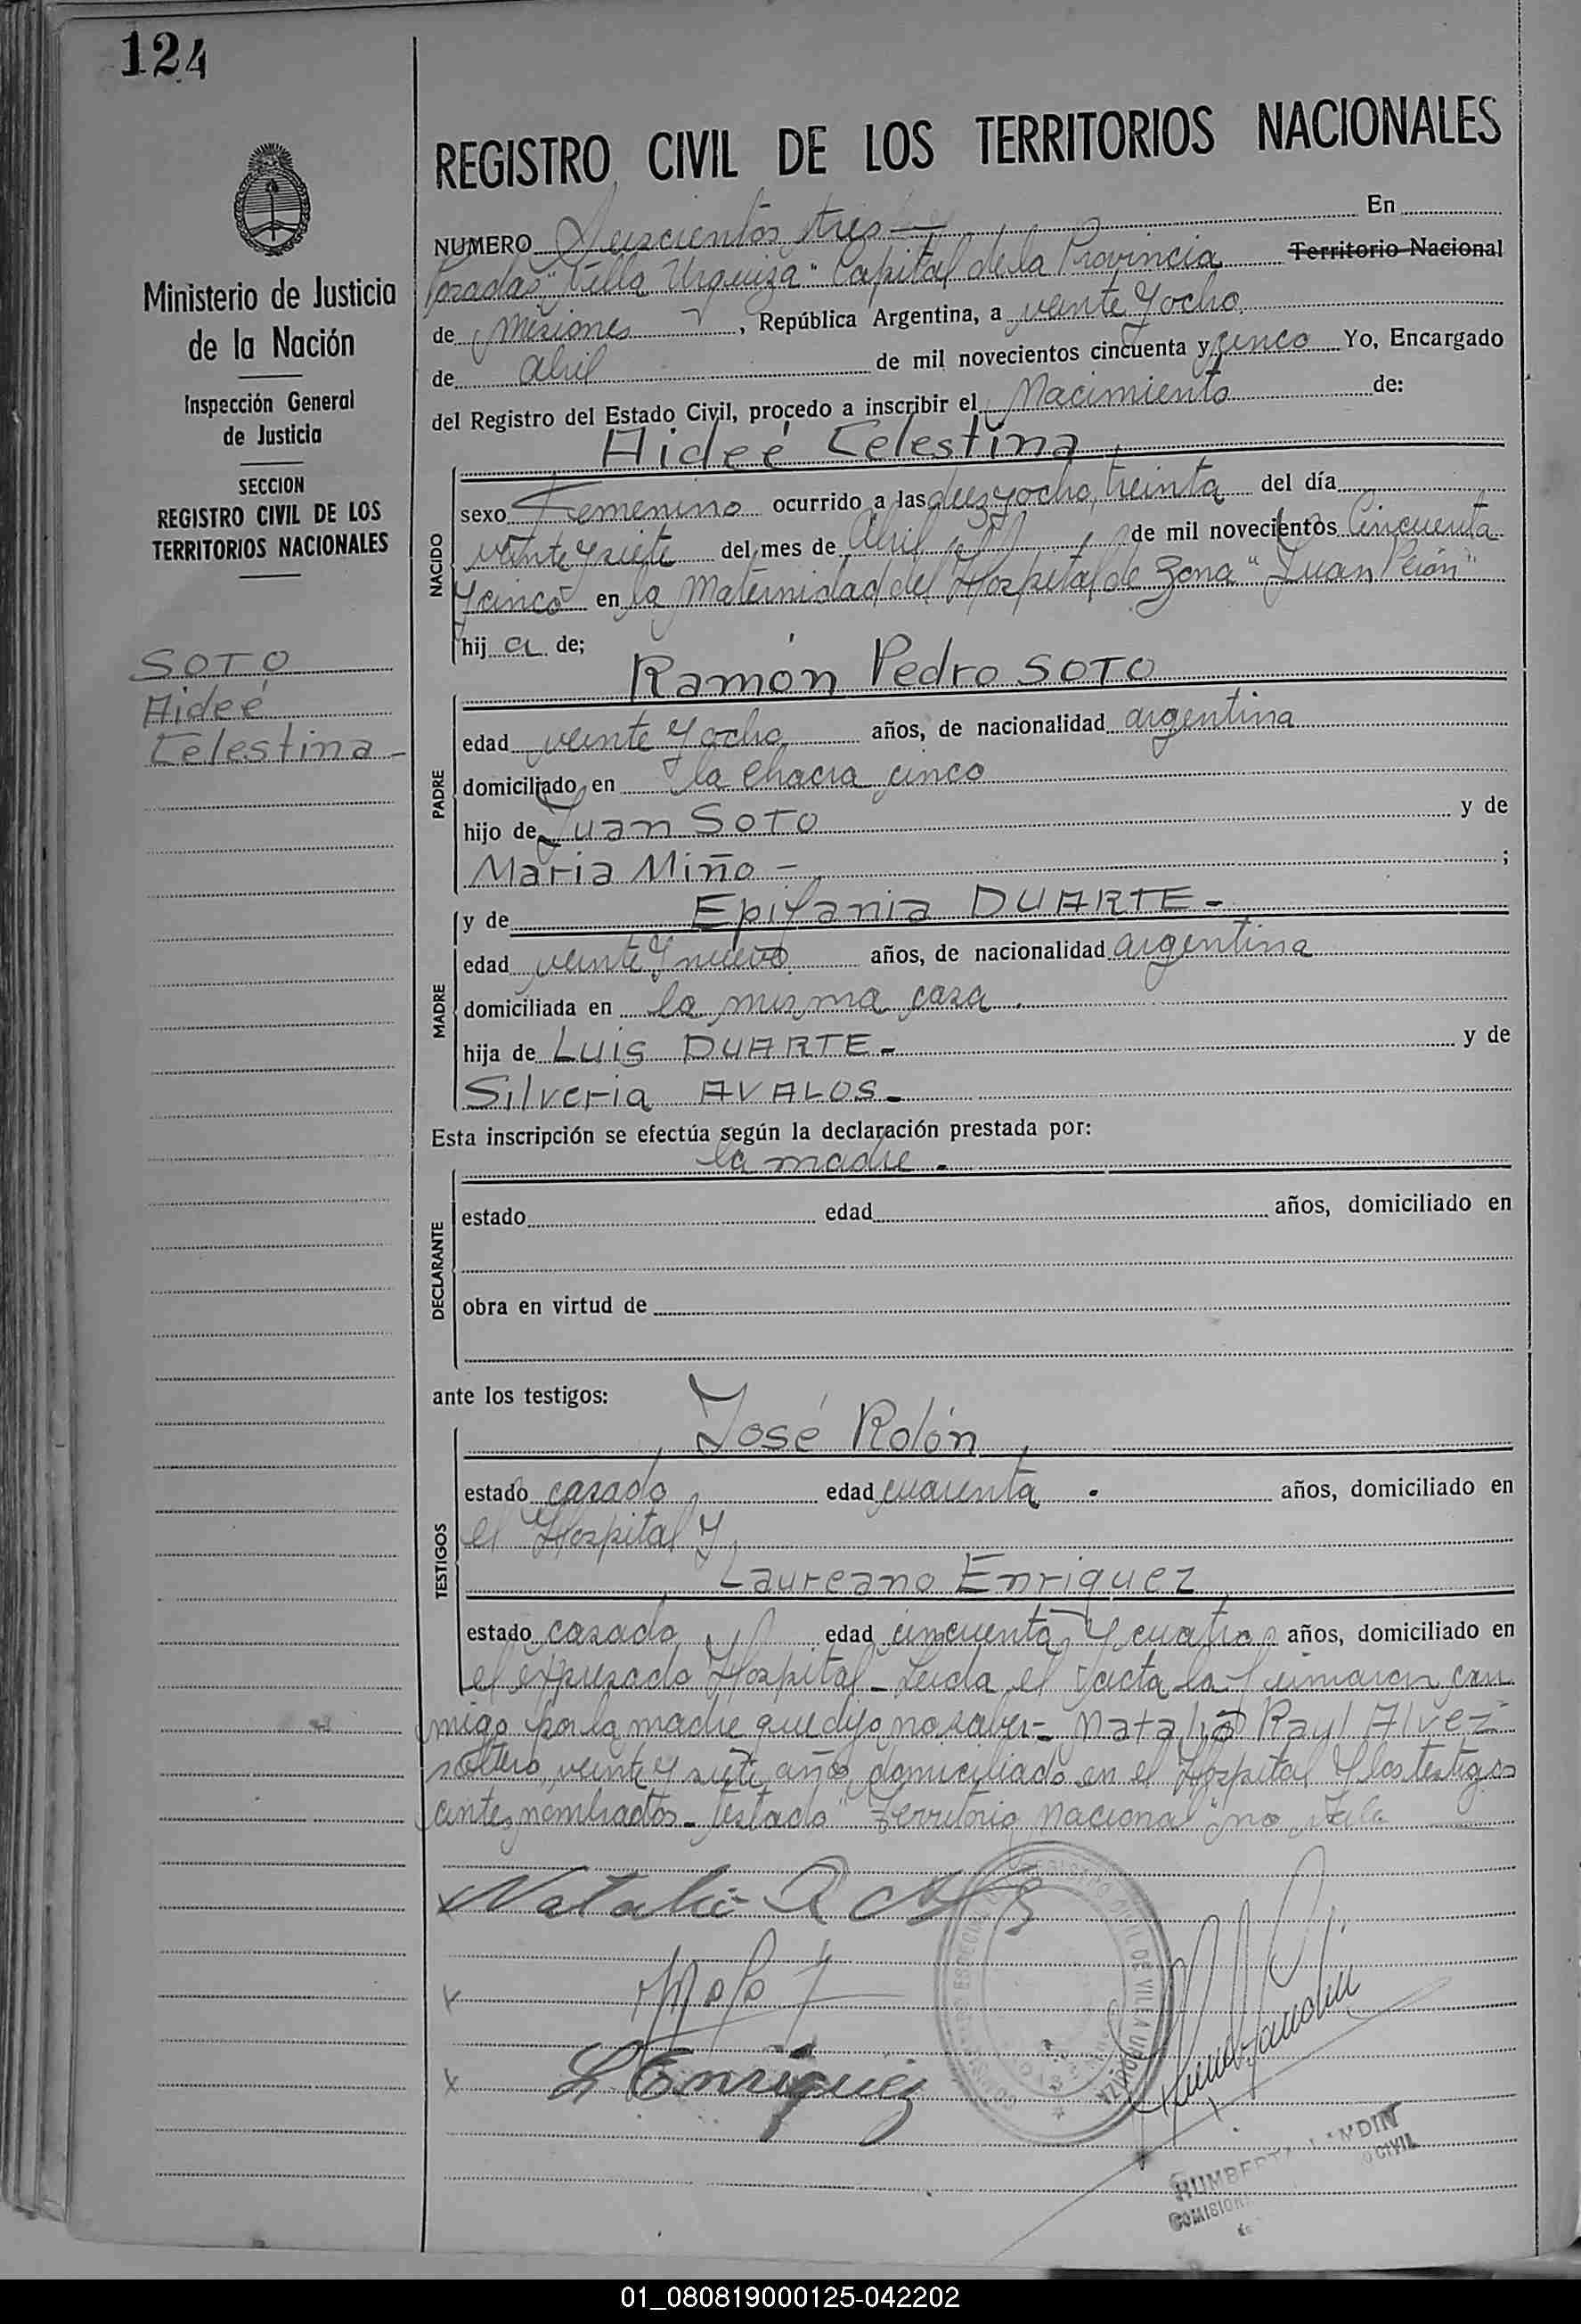 124
REGISTRO CIVIL DE LOS TERRITORIOS NACIONALES
Ministerio de Justicia
de la Nación
Inspección General
de Justicia
SECCION
REGISTRO CIVIL DE LOS
TERRITORIOS NACIONALES
SOTO
Aideé
Celestina -
NUMERO Seiscientos tres — En
Posadas "Villa Urquiza" Capital de la Provincia Territorio Nacional
de Misiones, República Argentina, a veinte y ocho
de abril de mil novecientos cincuenta y cinco Yo, Encargado
del Registro del Estado Civil, procedo a inscribir el Nacimiento de:
Aideé Celestina
NACIDO
sexo Femenino ocurrido a las diez y ocho, treinta del día
veinte y siete del mes de Abril de mil novecientos Cincuenta
y cinco en la Maternidad del Hospital de Zona "Juan Perón"
hij a de;
Ramón Pedro SOTO
PADRE
edad veinte y ocho años, de nacionalidad argentina
domiciliado en la chacra cinco
hijo de Juan SOTO y de
Maria Miño - ;
y de Epifania DUARTE -
MADRE
edad veinte y nueve años, de nacionalidad argentina
domiciliada en la misma casa .
hija de LUIS DUARTE - y de
Silveria AVALOS -
Esta inscripción se efectúa según la declaración prestada por:
la madre .
DECLARANTE
estado edad años, domiciliado en
obra en virtud de
ante los testigos:
José Rolón
TESTIGOS
estado casado edad cuarenta . años, domiciliado en
el Hospital y
Laureano Enriquez
estado casado edad cincuenta y cuatro años, domiciliado en
el expresado Hospital - Leida el acta la firmaron con
migo por la madre que dijo no saber - Natalio Raul Alvez
soltero, veinte y siete años, domiciliado en el Hospital y los testigos
antes nombrados - Testado "Territorio Nacional" no vale
Natalio R
L Enriquez
REGISTRO CIVIL DE VILLA URQUIZA
HUMBERTO LANDIN
CIVIL
01_080819000125-042202